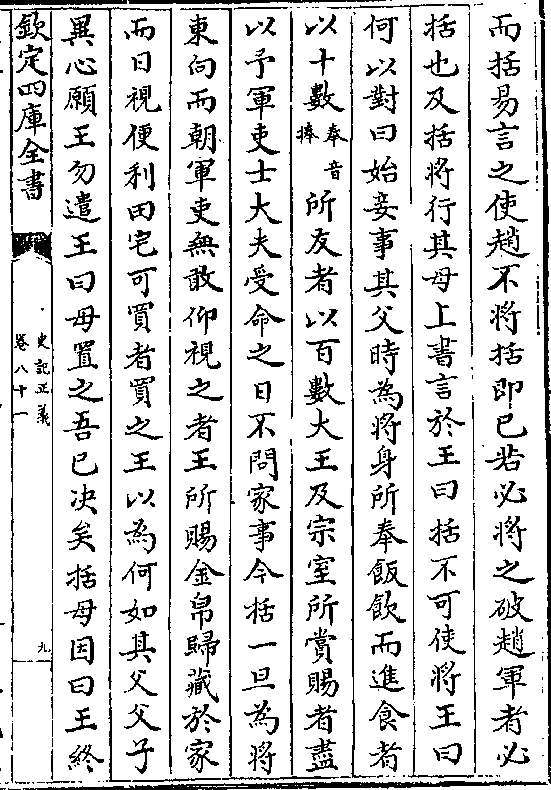 而括易言之使趙不將括即已若必將之破趙軍者必
括也及括將行其母上書言於王曰括不可使將王曰
何以對曰始妾事其父時為將身所奉飯飲而進食者
以十數奉音捧所友者以百數大王及宗室所賞賜者盡
以予軍吏士大夫受命之日不問家事今括一旦為將
東向而朝軍吏無敢仰視之者王所賜金帛歸藏於家
而日視便利田宅可買者買之王以為何如其父父子
異心願王勿遣王曰母置之吾已决矣括母因曰王終
欽定四庫全書
史記正義
卷八十一
九